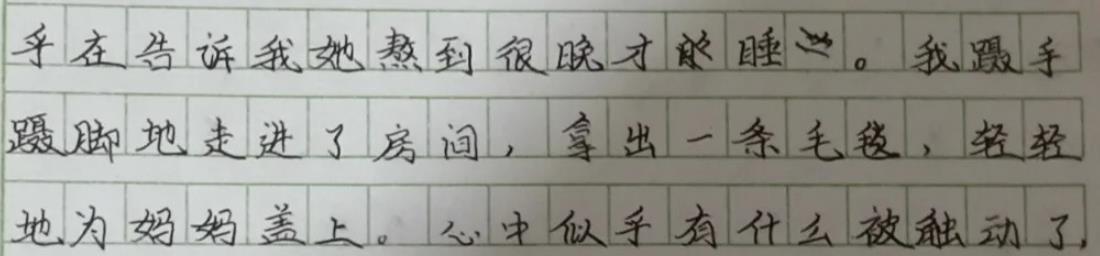 乎在告诉我她熬到很晚才睡。我蹑手
蹑脚地走进了房间，拿出一条毛毯，轻轻
地为妈妈盖上。心中似乎有什么被触动了，